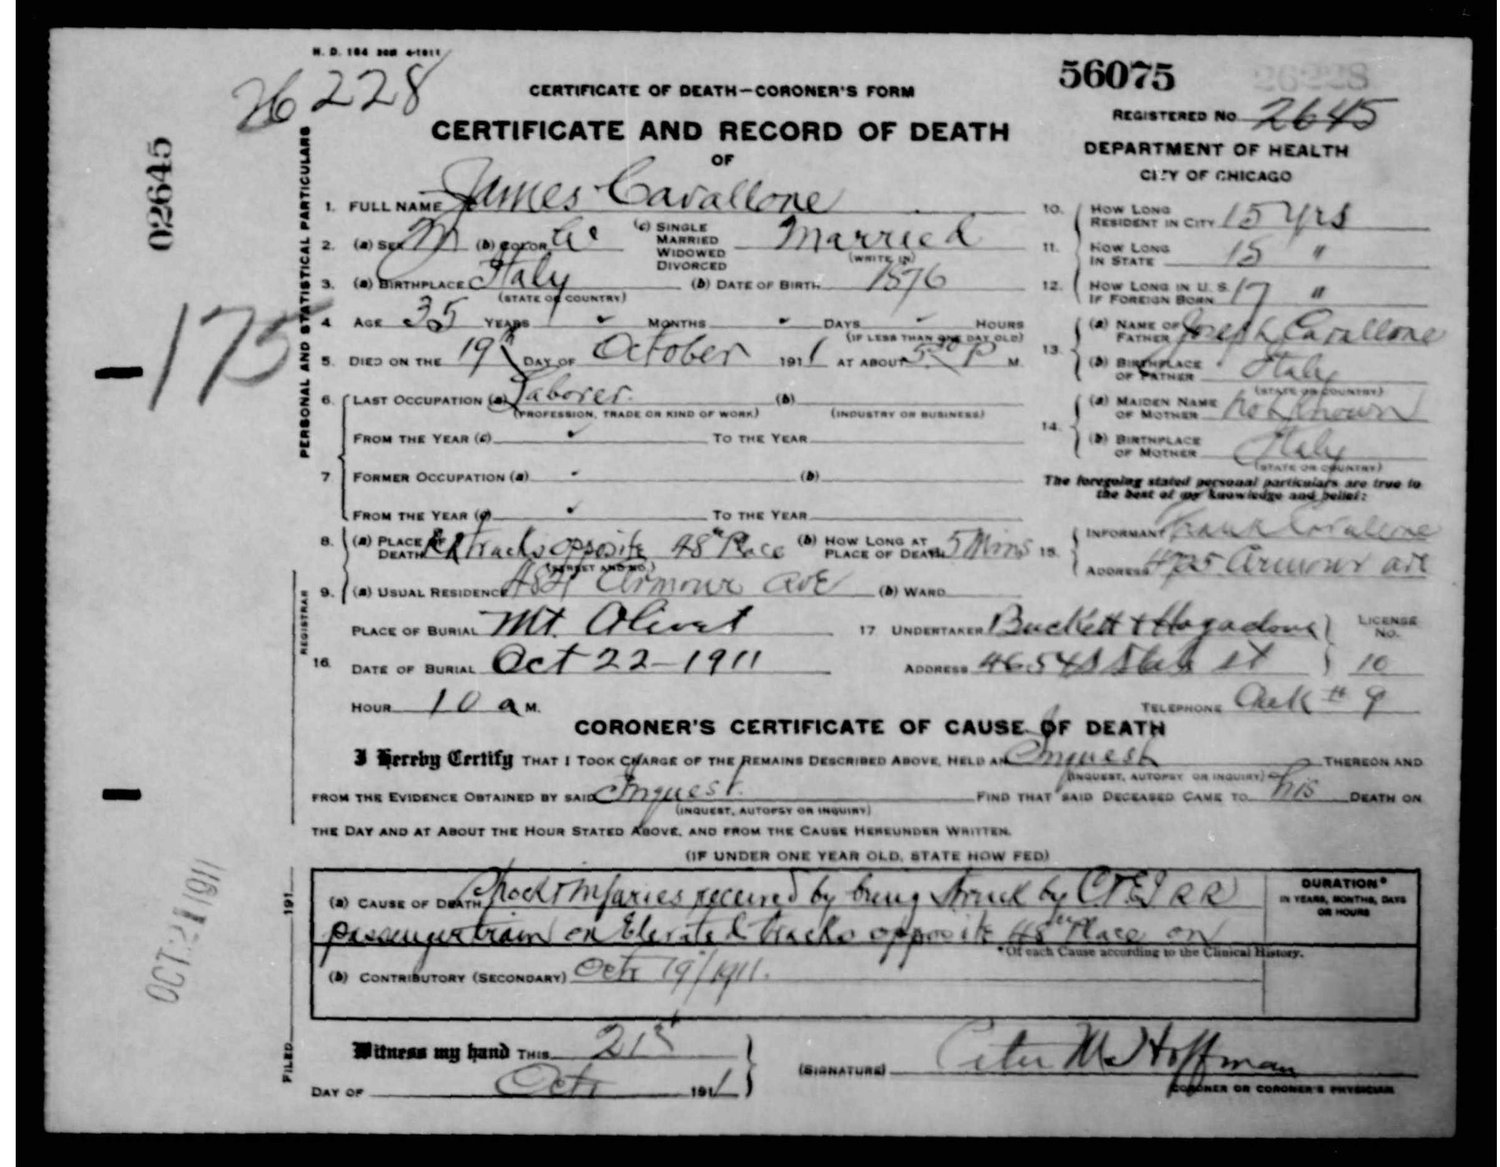 H. D. 184 30M 4-1911
26228
56075
26228
CERTIFICATE OF DEATH—CORONER'S FORM
REGISTERED NO. 2645
CERTIFICATE AND RECORD OF DEATH
OF
DEPARTMENT OF HEALTH
CITY OF CHICAGO
02645
PERSONAL AND STATISTICAL PARTICULARS
1. FULL NAME James Cavallone
2. (a) SEX M (b) COLOR W (c) SINGLE MARRIED WIDOWED DIVORCED Married
(WRITE IN)
3. (a) BIRTHPLACE Italy (b) DATE OF BIRTH 1876
(STATE OR COUNTRY)
4 AGE 35 YEARS MONTHS DAYS HOURS
(IF LESS THAN ONE DAY OLD)
5. DIED ON THE 19th DAY OF October 1911 AT ABOUT 5:30 P M
–175
6. LAST OCCUPATION (a) Laborer (b)
(PROFESSION, TRADE OR KIND OF WORK) (INDUSTRY OR BUSINESS)
FROM THE YEAR (c) TO THE YEAR
7 FORMER OCCUPATION (a) (b)
FROM THE YEAR (c) TO THE YEAR
8. (a) PLACE OF DEATH RR tracks opposite 48th Place (b) HOW LONG AT PLACE OF DEATH 5 Mins
(STREET AND NO.)
9. (a) USUAL RESIDENCE Armour Ave (b) WARD
10. HOW LONG RESIDENT IN CITY 15 yrs
11. HOW LONG IN STATE 15 "
12. HOW LONG IN U. S. IF FOREIGN BORN 17 "
13. (a) NAME OF FATHER Joseph Cavallone
(b) BIRTHPLACE OF FATHER Italy
(STATE OR COUNTRY)
14. (a) MAIDEN NAME OF MOTHER not known
(b) BIRTHPLACE OF MOTHER Italy
(STATE OR COUNTRY)
The foregoing stated personal particulars are true to
the best of my knowledge and belief:
15. INFORMANT Frank Cavallone
ADDRESS 4725 Armour ave
REGISTRAR
16. PLACE OF BURIAL Mt. Olivet
DATE OF BURIAL Oct 22–1911
HOUR 10 a M.
17 UNDERTAKER LICENSE NO.
ADDRESS 4654 S State st 10
TELEPHONE # 9
CORONER'S CERTIFICATE OF CAUSE OF DEATH
I Hereby Certify THAT I TOOK CHARGE OF THE REMAINS DESCRIBED ABOVE, HELD AN Inquest THEREON AND
(INQUEST, AUTOPSY OR INQUIRY)
FROM THE EVIDENCE OBTAINED BY SAID Inquest FIND THAT SAID DECEASED CAME TO his DEATH ON
(INQUEST, AUTOPSY OR INQUIRY)
THE DAY AND AT ABOUT THE HOUR STATED ABOVE, AND FROM THE CAUSE HEREUNDER WRITTEN.
(IF UNDER ONE YEAR OLD, STATE HOW FED)
(a) CAUSE OF DEATH Shock & injuries received by being struck by RR
passenger train on Elevated tracks opposite 48th Place on
DURATION*
IN YEARS, MONTHS, DAYS
OR HOURS
*Of each Cause according to the Clinical History.
(b) CONTRIBUTORY (SECONDARY) Oct 19/1911.
Witness my hand THIS 21st
DAY OF Oct 1911
(SIGNATURE) Peter M Hoffman
CORONER OR CORONER'S PHYSICIAN
FILED 191
OCT 21 1911